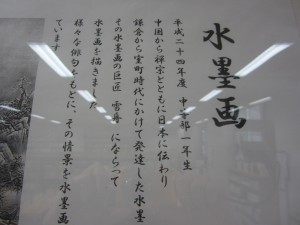 水墨画
平成二十四年度　中学部一年生
中国から禅宗とともに日本に伝わり
鎌倉から室町時代にかけて発達した水墨
その水墨画の巨匠　雪舟　にならって
水墨画を描きました
様々な俳句をもとに、その情景を水墨画
ています